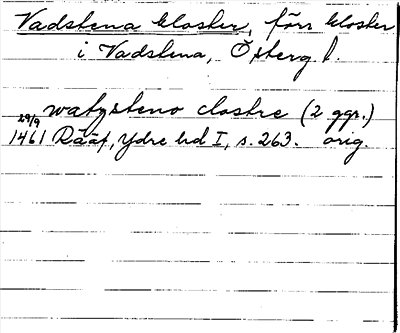 Vadstena kloster, förr kloster
i Vadstena, Österg l.
watzsteno clostre (2 ggr.)
29/9
1461 Rääf, Ydre hd I, s. 263. orig.